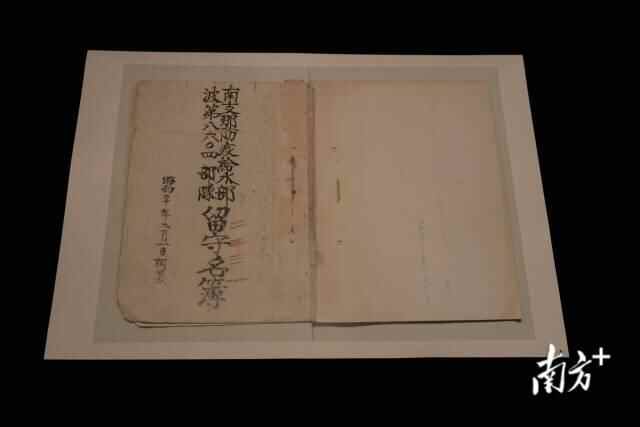 南支那防疫給水部
波第八六〇四部隊
留守名簿
昭和二十年九月一日調製
南方+